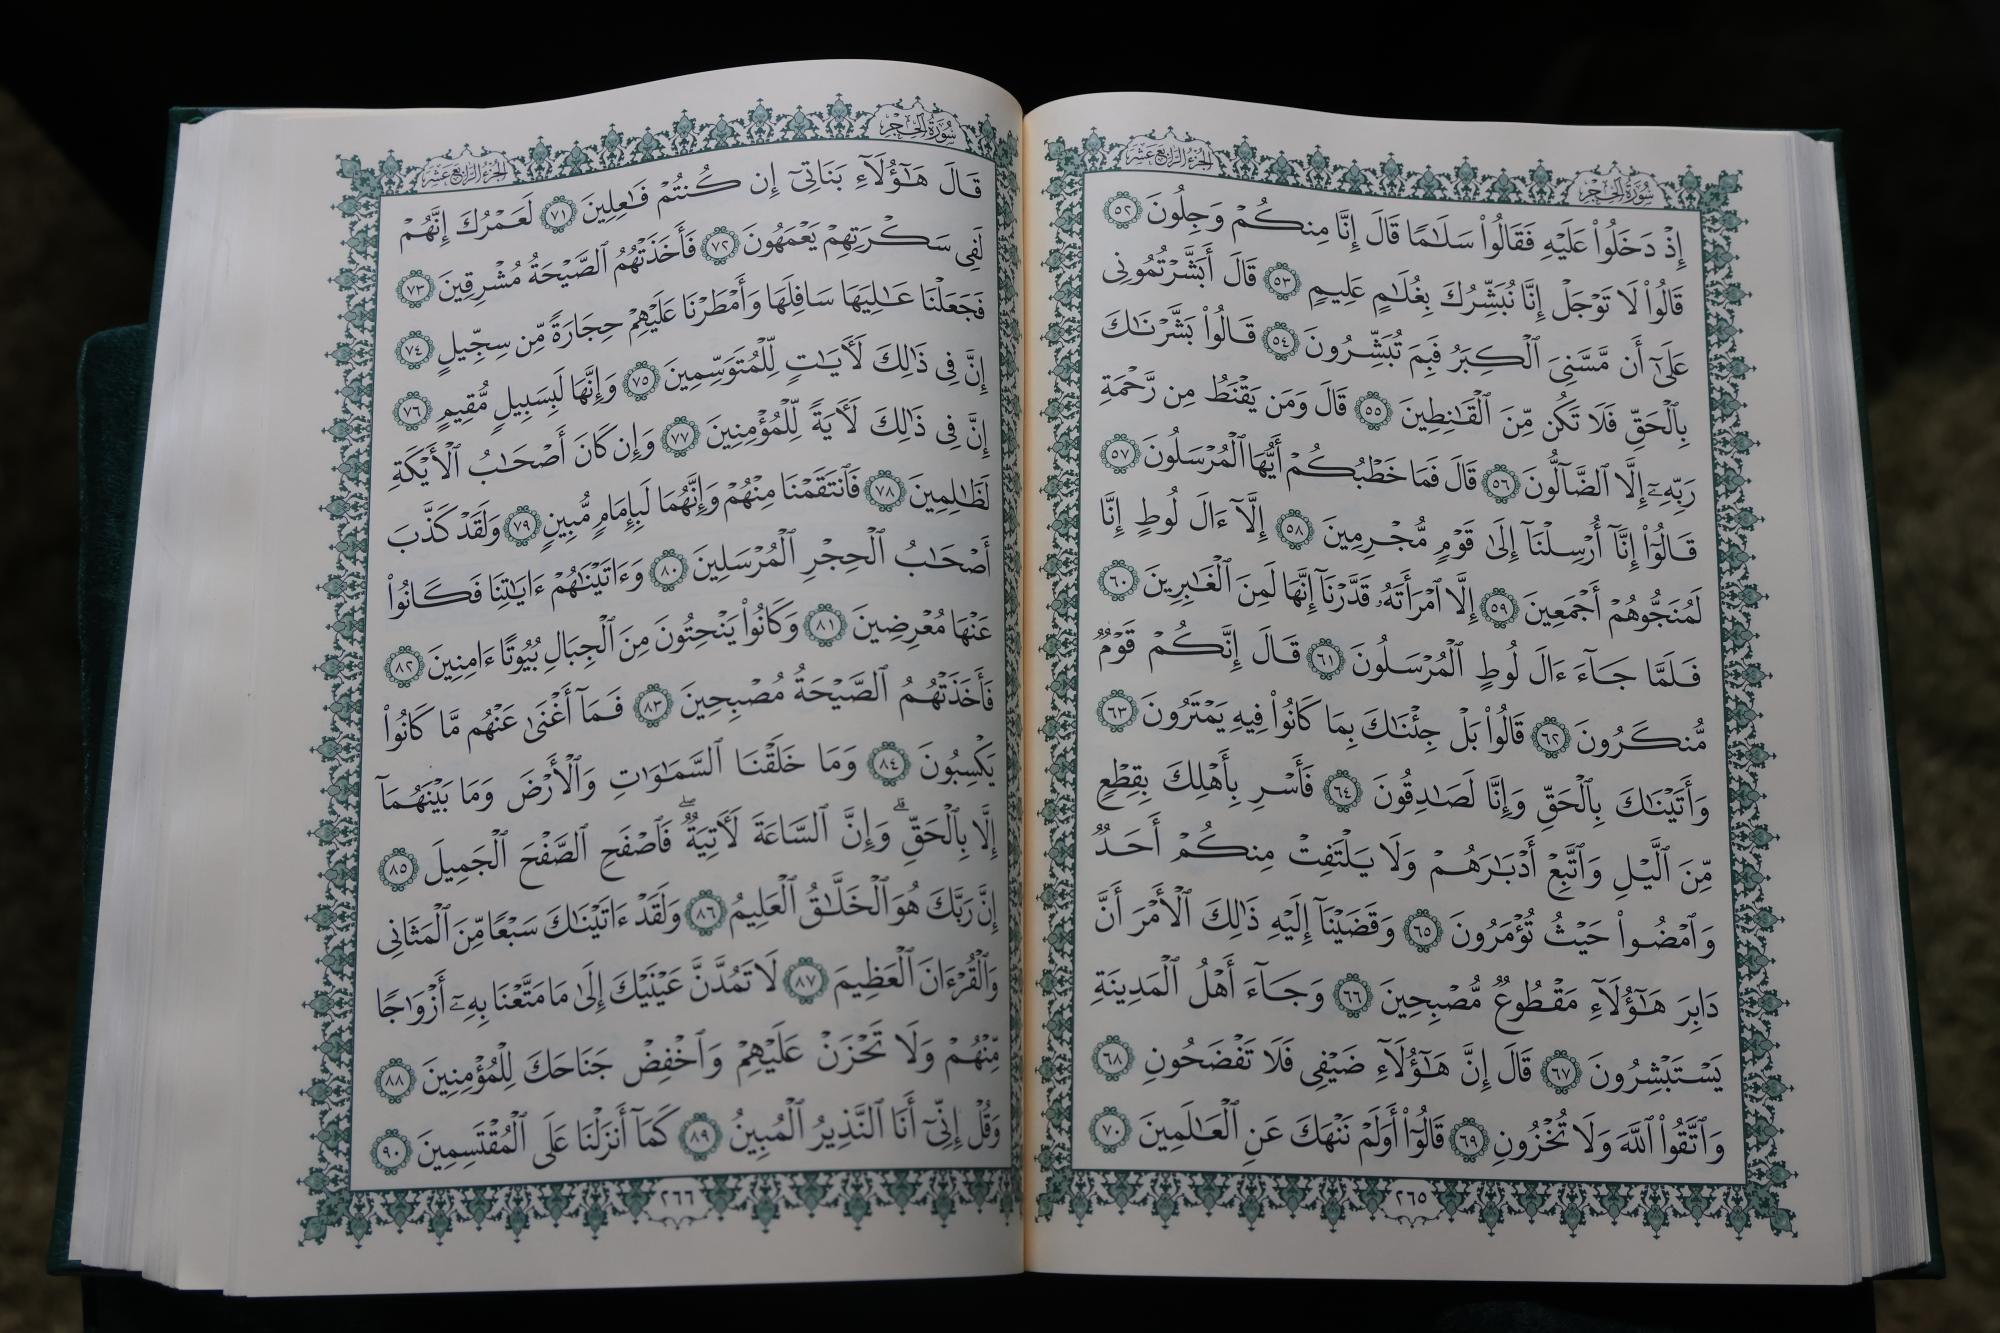 الجزء الرابع عشر
سورة الحجر
إِذْ دَخَلُوا۟ عَلَيْهِ فَقَالُوا۟ سَلَـٰمًا قَالَ إِنَّا مِنكُمْ وَجِلُونَ ٥٢
قَالُوا۟ لَا تَوْجَلْ إِنَّا نُبَشِّرُكَ بِغُلَـٰمٍ عَلِيمٍ ٥٣ قَالَ أَبَشَّرْتُمُونِى
عَلَىٰٓ أَن مَّسَّنِىَ ٱلْكِبَرُ فَبِمَ تُبَشِّرُونَ ٥٤ قَالُوا۟ بَشَّرْنَـٰكَ
بِٱلْحَقِّ فَلَا تَكُن مِّنَ ٱلْقَـٰنِطِينَ ٥٥ قَالَ وَمَن يَقْنَطُ مِن رَّحْمَةِ
رَبِّهِۦٓ إِلَّا ٱلضَّآلُّونَ ٥٦ قَالَ فَمَا خَطْبُكُمْ أَيُّهَا ٱلْمُرْسَلُونَ ٥٧
قَالُوٓا۟ إِنَّآ أُرْسِلْنَآ إِلَىٰ قَوْمٍ مُّجْرِمِينَ ٥٨ إِلَّآ ءَالَ لُوطٍ إِنَّا
لَمُنَجُّوهُمْ أَجْمَعِينَ ٥٩ إِلَّا ٱمْرَأَتَهُۥ قَدَّرْنَآ إِنَّهَا لَمِنَ ٱلْغَـٰبِرِينَ ٦٠
فَلَمَّا جَآءَ ءَالَ لُوطٍ ٱلْمُرْسَلُونَ ٦١ قَالَ إِنَّكُمْ قَوْمٌ
مُّنكَرُونَ ٦٢ قَالُوا۟ بَلْ جِئْنَـٰكَ بِمَا كَانُوا۟ فِيهِ يَمْتَرُونَ ٦٣
وَأَتَيْنَـٰكَ بِٱلْحَقِّ وَإِنَّا لَصَـٰدِقُونَ ٦٤ فَأَسْرِ بِأَهْلِكَ بِقِطْعٍ
مِّنَ ٱلَّيْلِ وَٱتَّبِعْ أَدْبَـٰرَهُمْ وَلَا يَلْتَفِتْ مِنكُمْ أَحَدٌ
وَٱمْضُوا۟ حَيْثُ تُؤْمَرُونَ ٦٥ وَقَضَيْنَآ إِلَيْهِ ذَٰلِكَ ٱلْأَمْرَ أَنَّ
دَابِرَ هَـٰٓؤُلَآءِ مَقْطُوعٌ مُّصْبِحِينَ ٦٦ وَجَآءَ أَهْلُ ٱلْمَدِينَةِ
يَسْتَبْشِرُونَ ٦٧ قَالَ إِنَّ هَـٰٓؤُلَآءِ ضَيْفِى فَلَا تَفْضَحُونِ ٦٨
وَٱتَّقُوا۟ ٱللَّهَ وَلَا تُخْزُونِ ٦٩ قَالُوٓا۟ أَوَلَمْ نَنْهَكَ عَنِ ٱلْعَـٰلَمِينَ ٧٠
٢٦٥
سورة الحجر
الجزء الرابع عشر
قَالَ هَـٰٓؤُلَآءِ بَنَاتِىٓ إِن كُنتُمْ فَـٰعِلِينَ ٧١ لَعَمْرُكَ إِنَّهُمْ
لَفِى سَكْرَتِهِمْ يَعْمَهُونَ ٧٢ فَأَخَذَتْهُمُ ٱلصَّيْحَةُ مُشْرِقِينَ ٧٣
فَجَعَلْنَا عَـٰلِيَهَا سَافِلَهَا وَأَمْطَرْنَا عَلَيْهِمْ حِجَارَةً مِّن سِجِّيلٍ ٧٤
إِنَّ فِى ذَٰلِكَ لَـَٔايَـٰتٍ لِّلْمُتَوَسِّمِينَ ٧٥ وَإِنَّهَا لَبِسَبِيلٍ مُّقِيمٍ ٧٦
إِنَّ فِى ذَٰلِكَ لَـَٔايَةً لِّلْمُؤْمِنِينَ ٧٧ وَإِن كَانَ أَصْحَـٰبُ ٱلْأَيْكَةِ
لَظَـٰلِمِينَ ٧٨ فَٱنتَقَمْنَا مِنْهُمْ وَإِنَّهُمَا لَبِإِمَامٍ مُّبِينٍ ٧٩ وَلَقَدْ كَذَّبَ
أَصْحَـٰبُ ٱلْحِجْرِ ٱلْمُرْسَلِينَ ٨٠ وَءَاتَيْنَـٰهُمْ ءَايَـٰتِنَا فَكَانُوا۟
عَنْهَا مُعْرِضِينَ ٨١ وَكَانُوا۟ يَنْحِتُونَ مِنَ ٱلْجِبَالِ بُيُوتًا ءَامِنِينَ ٨٢
فَأَخَذَتْهُمُ ٱلصَّيْحَةُ مُصْبِحِينَ ٨٣ فَمَآ أَغْنَىٰ عَنْهُم مَّا كَانُوا۟
يَكْسِبُونَ ٨٤ وَمَا خَلَقْنَا ٱلسَّمَـٰوَٰتِ وَٱلْأَرْضَ وَمَا بَيْنَهُمَآ
إِلَّا بِٱلْحَقِّ ۗ وَإِنَّ ٱلسَّاعَةَ لَـَٔاتِيَةٌ ۖ فَٱصْفَحِ ٱلصَّفْحَ ٱلْجَمِيلَ ٨٥
إِنَّ رَبَّكَ هُوَ ٱلْخَلَّـٰقُ ٱلْعَلِيمُ ٨٦ وَلَقَدْ ءَاتَيْنَـٰكَ سَبْعًا مِّنَ ٱلْمَثَانِى
وَٱلْقُرْءَانَ ٱلْعَظِيمَ ٨٧ لَا تَمُدَّنَّ عَيْنَيْكَ إِلَىٰ مَا مَتَّعْنَا بِهِۦٓ أَزْوَٰجًا
مِّنْهُمْ وَلَا تَحْزَنْ عَلَيْهِمْ وَٱخْفِضْ جَنَاحَكَ لِلْمُؤْمِنِينَ ٨٨
وَقُلْ إِنِّىٓ أَنَا ٱلنَّذِيرُ ٱلْمُبِينُ ٨٩ كَمَآ أَنزَلْنَا عَلَى ٱلْمُقْتَسِمِينَ ٩٠
٢٦٦